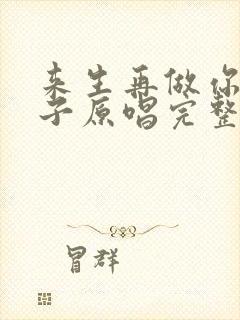 来生再做你
子原唱完整
冒群